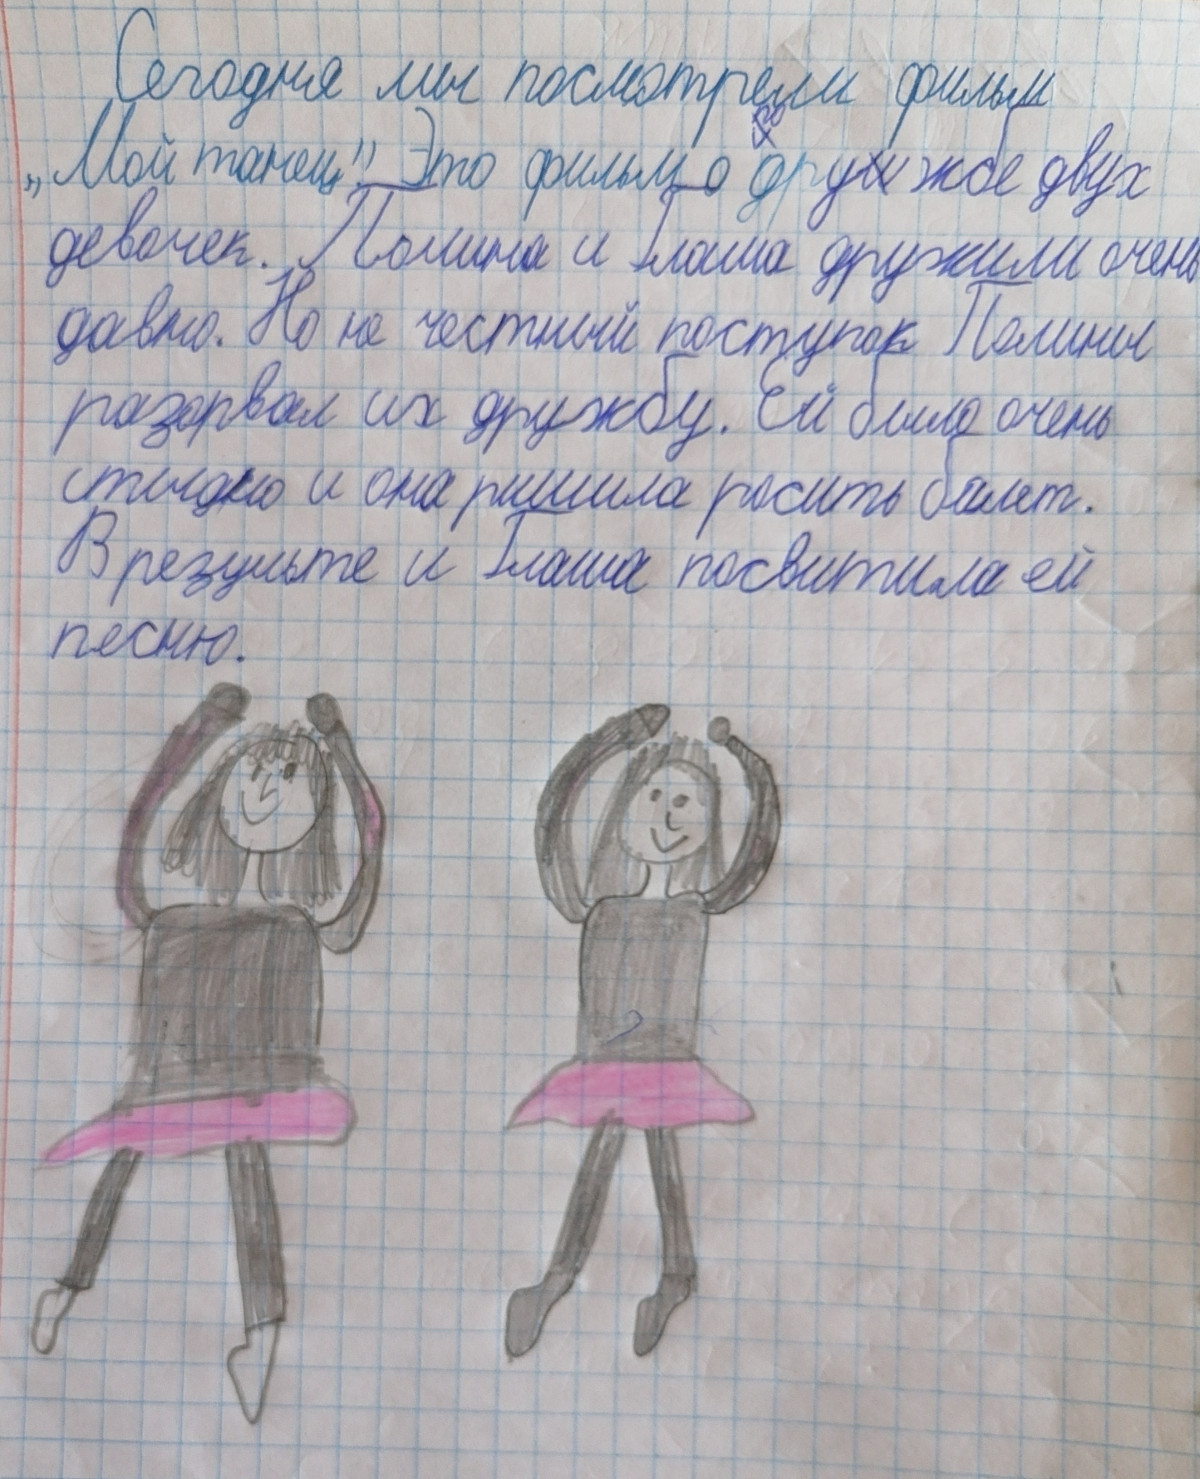 Сегодня мы посмотрели фильм
„Мой танец" Это фильм о дружбе двух
девочек. Полина и Глаша дружили очень
давно. Но не честный поступок Полины
разорвал их дружбу. Ей было очень
стыдно и она ришила росить балет.
В результе и Глаша посвитила ей
песню.